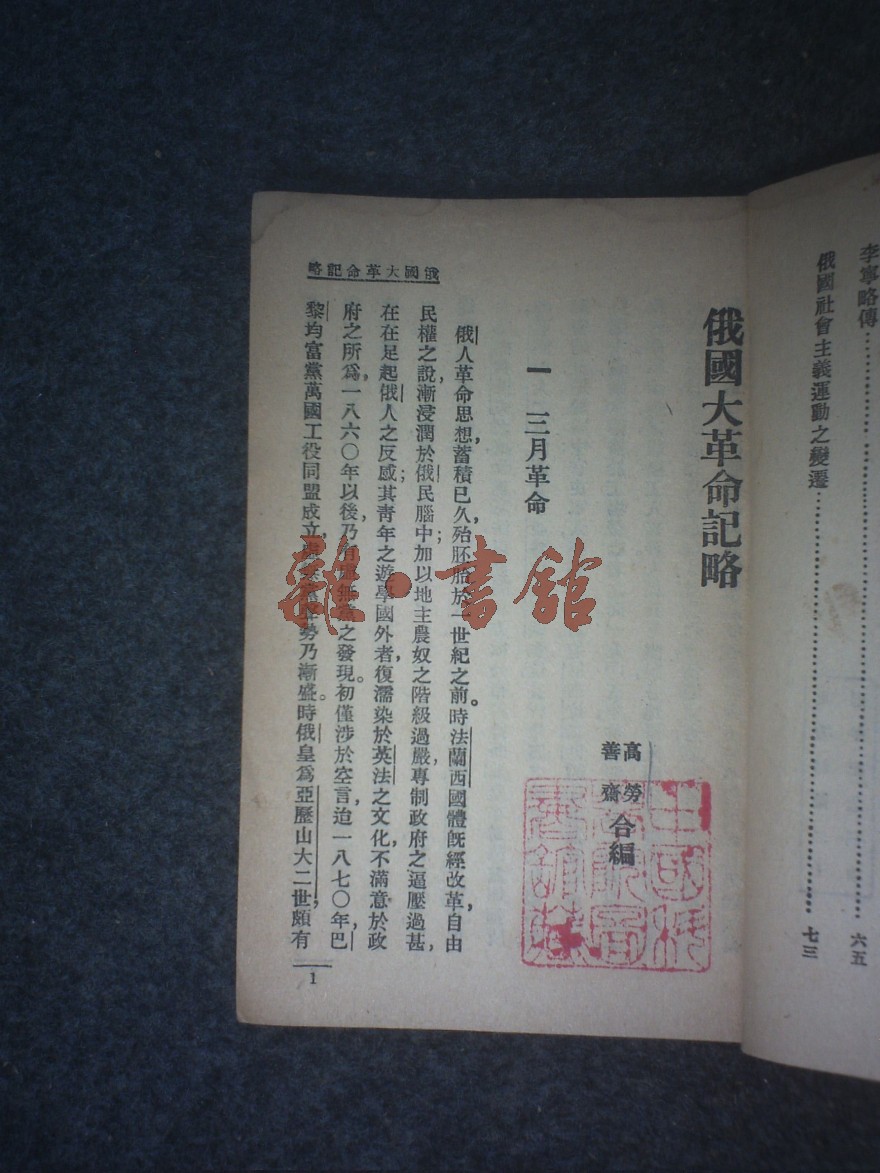 李寧略傳……六五
俄國社會主義運動之變遷……七三
俄國大革命記略
高勞
善齋
合編
一 三月革命
俄人革命思想,蓄積已久,殆胚胎於一世紀之前。時法蘭西國體旣經改革,自由
民權之說,漸浸潤於俄民腦中;加以地主農奴之階級過嚴,專制政府之逼壓過甚,
在在足起俄人之反感;其靑年之遊學國外者,復濡染於英法之文化,不滿意於政
府之所爲,一八六〇年以後,乃有虛無黨之發現。初僅涉於空言,迨一八七〇年,巴
黎均富黨萬國工役同盟成立,勢乃漸盛。時俄皇爲亞歷山大二世,頗有
俄國大革命記略
1
雜·書館